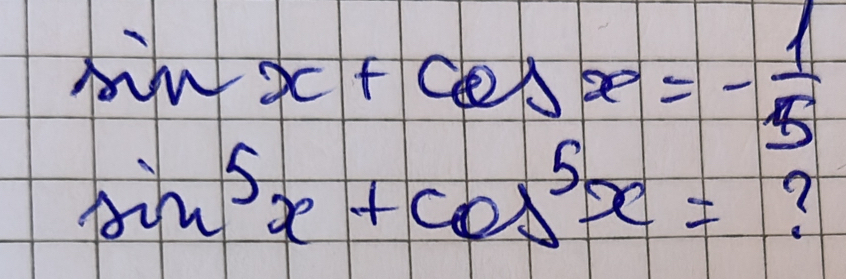 sin x + cos x = - 1/5
sin⁵x + cos⁵x = ?